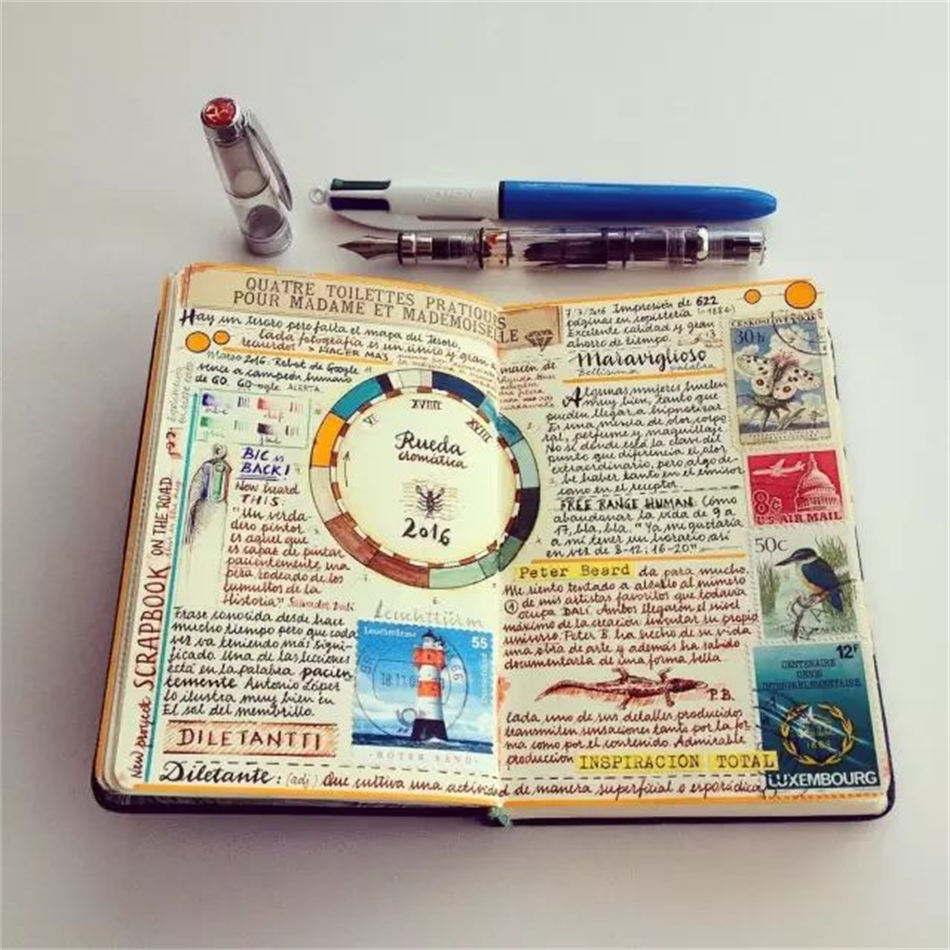 QUATRE TOILETTES PRATIQUES
POUR MADAME ET MADEMOISELLE
Hay un tesoro pero falta el mapa del tesoro,
Cada fotografía es un único y gran
recuerdo! HACER MAS
Marzo 2016. Robot de Google
vence a campeón humano
de GO. Google ALERTA.
BIC is
BACK!
Now heard
THIS
"Un verda-
dero pintor
es aquel que
es capaz de pintar
pacientemente una
pera rodeado de los
tumultos de la
historia." Salvador Dalí
Frase conocida desde hace
mucho tiempo pero que cada
vez va teniendo más signi-
ficado. Una de las lecciones
está en la palabra pacien-
temente Antonio López
lo ilustra muy bien en
El sol del membrillo.
DILETANTTI
Diletante: (adj) Que cultiva una actividad de manera superficial o esporádica
New proyect SCRAPBOOK ON THE ROAD
XVIII
XXIII
VI
Rueda
cromática
2016
Leuchttürm
Leuchttürme
55
Deutschland
66
18.11.0
ROTER SAND
7/3/2016 Impresión de 622
páginas en copistería (-188€)
Excelente calidad y gran
ahorro de tiempo.
Maraviglioso
Bellissima palabra
Algunas mujeres huelen
muy bien, tanto que
pueden llegar a hipnotizar
Es una mezcla de olor corpo
ral, perfume y maquillaje
No sé donde está la clave del
punto que diferencia el olor
extraordinario, pero algo de-
be haber tanto en el emisor
como en el receptor.
FREE RANGE HUMAN: Cómo
abandonar la vida de 9 a
17, bla, bla. "Ya me gustaría
a mí tener un horario así
en vez de 8-12; 16-20"
Peter Beard da para mucho.
Me siento tentado a alzarlo al número
① de mis artistas favoritos que todavía
ocupa DALÍ. Ambos llegaron al nivel
máximo de la creación: inventar su propio
universo. Peter B. ha hecho de su vida
una obra de arte y además ha sabido
documentarla de una forma bella.
P.B.
Cada uno de sus detalles producidos
transmiten sensaciones tanto por la for
ma como por el contenido. Admirable
producción INSPIRACION TOTAL
ČESKOSLOVENSKO
30 h
8¢
U.S. AIR MAIL
50c
12F
CENTENAIRE
UNION
INTERPARLEMENTAIRE
LUXEMBOURG